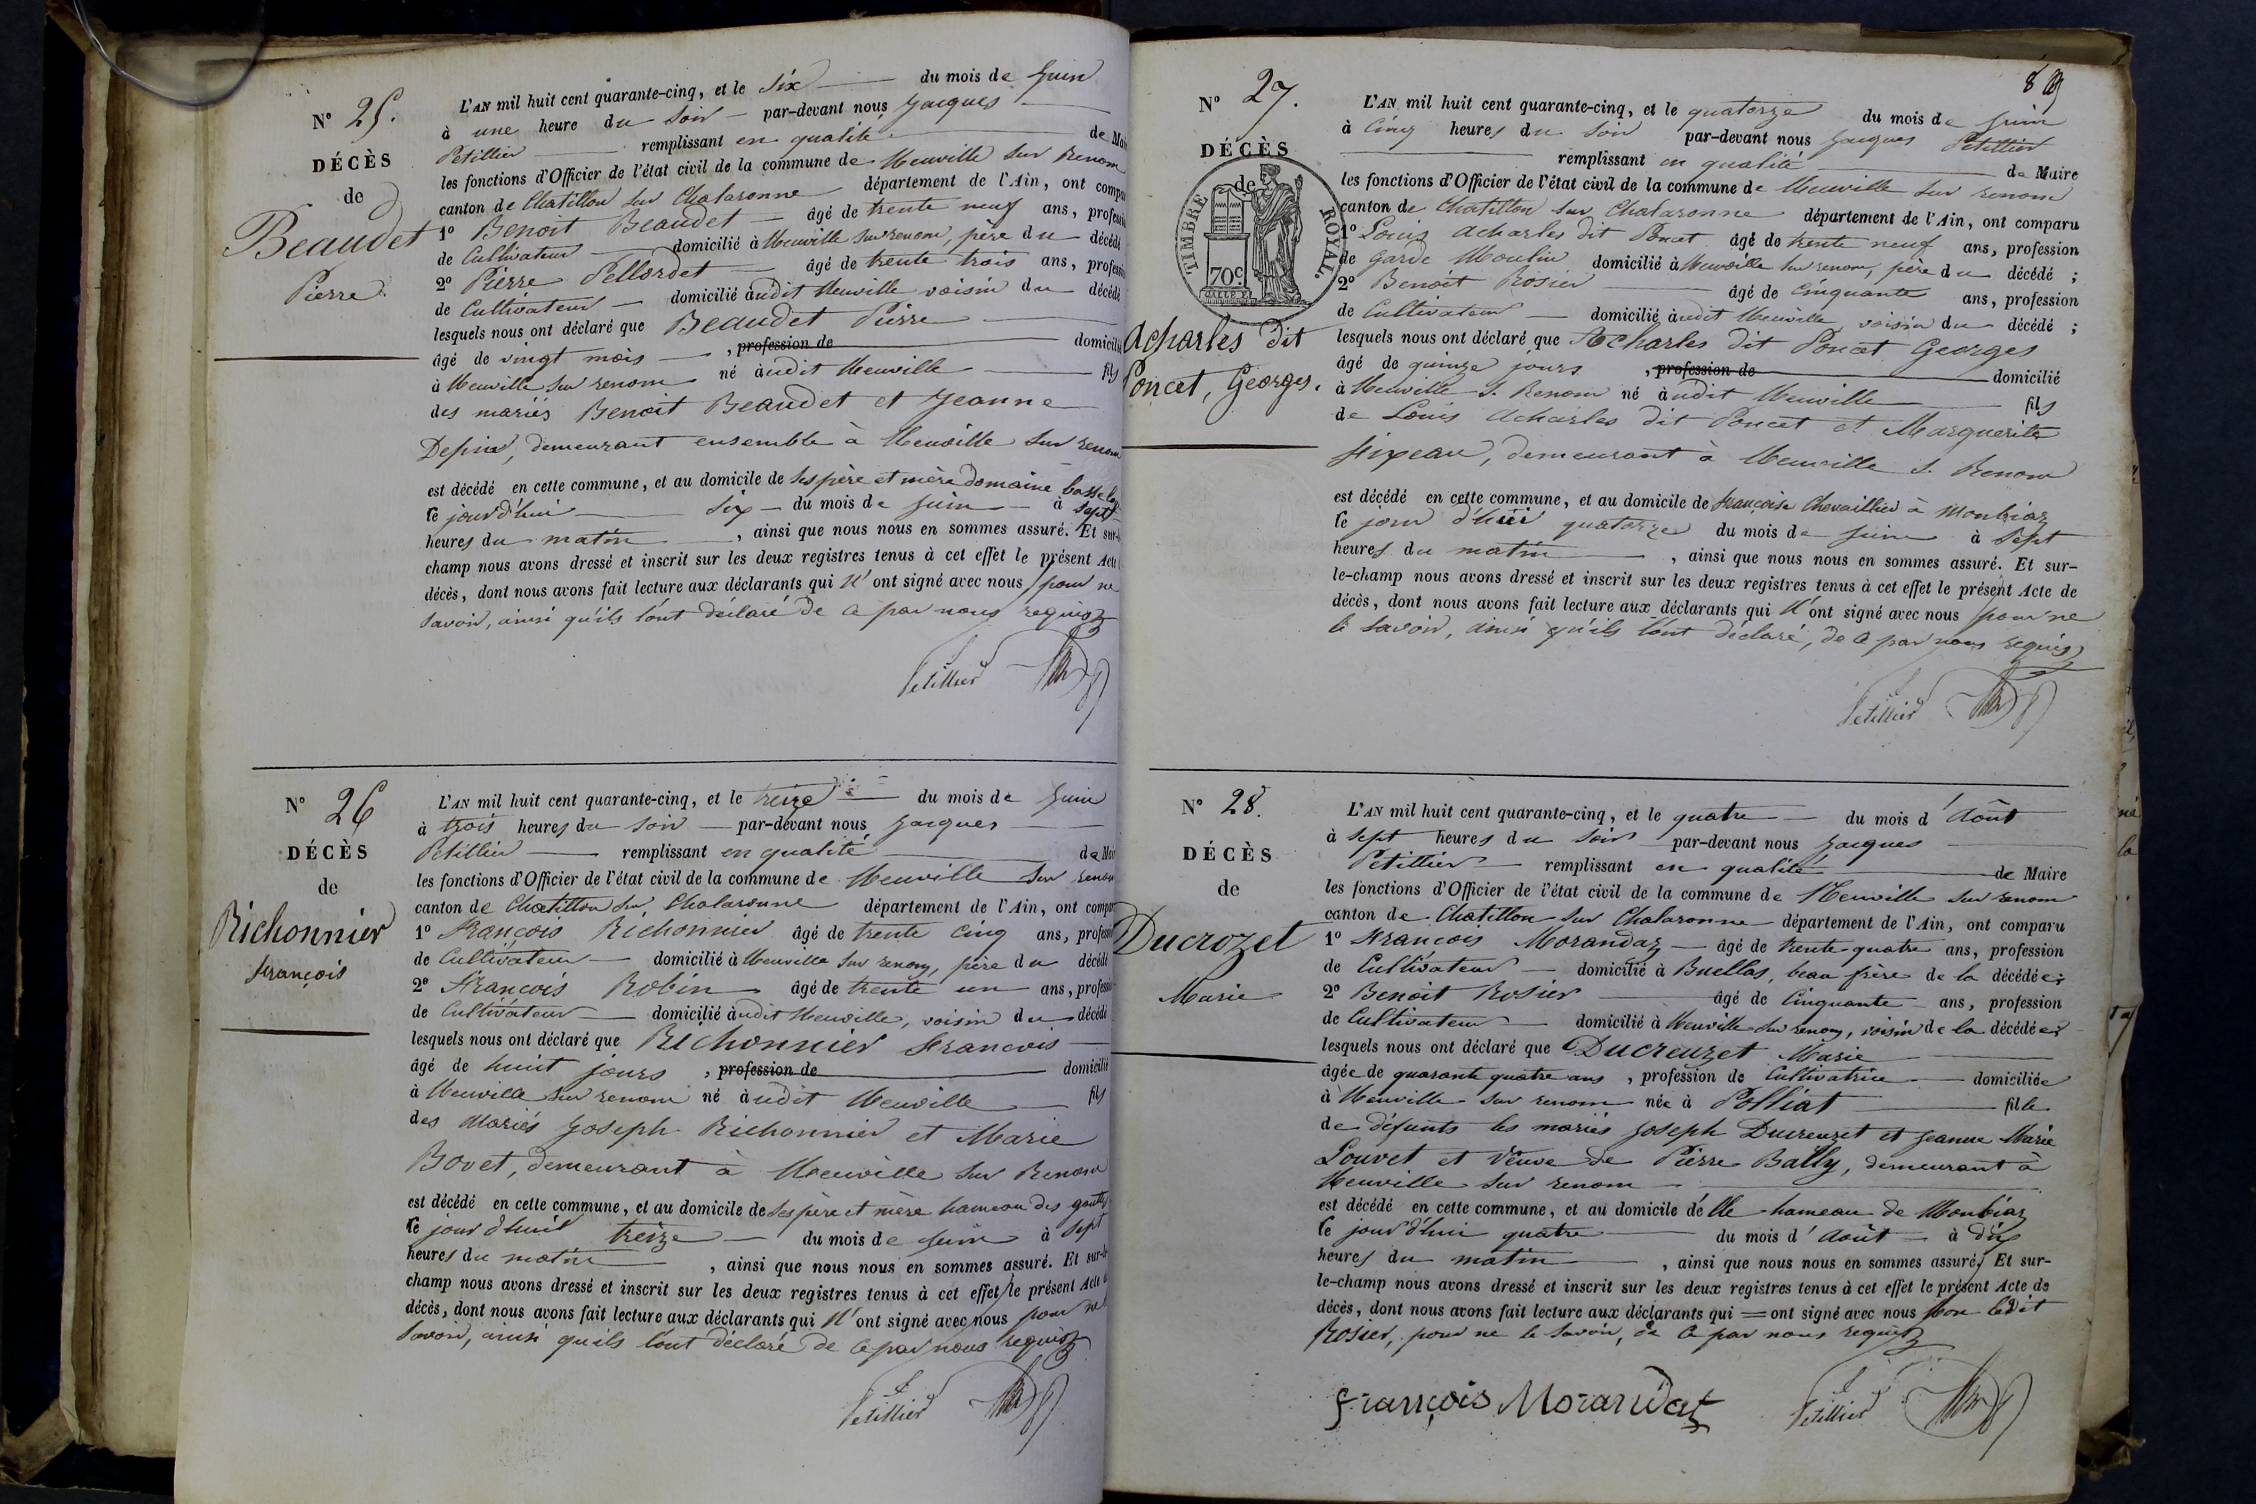 N° 25.
DÉCÈS
de
Beaudet
Pierre.
L'AN mil huit cent quarante-cinq, et le six du mois de juin
à une heure du soir par-devant nous Jacques
Petillier remplissant en qualité de Mai
les fonctions d'Officier de l'état civil de la commune de Neuville sur renom
canton de Chatillon sur Chalaronne département de l'Ain, ont compa
1° Benoit Beaudet âgé de trente neuf ans, profession
de Cultivateur domicilié à Neuville sur renom, père du décédé
2° Pierre Pellordet âgé de trente trois ans, profession
de Cultivateur domicilié audit Neuville voisin du décédé
lesquels nous ont déclaré que Beaudet Pierre
âgé de vingt mois , profession de domicilié
à Neuville sur renom né audit Neuville fils
des mariés Benoit Beaudet et Jeanne
demeurant ensemble à Neuville sur renom
est décédé en cette commune, et au domicile de ses père et mère domaine
le jourd'hui six du mois de juin à sept
heures du matin , ainsi que nous nous en sommes assuré. Et sur-l
champ nous avons dressé et inscrit sur les deux registres tenus à cet effet le présent Acte
décès, dont nous avons fait lecture aux déclarants qui n'ont signé avec nous pour ne
savoir, ainsi qu'ils l'ont déclaré de ce par nous requis
Petillier
N° 26
DÉCÈS
de
Richonnier
François
L'AN mil huit cent quarante-cinq, et le treize du mois de juin
à trois heures du soir par-devant nous Jacques
Petillier remplissant en qualité de Mai
les fonctions d'Officier de l'état civil de la commune de Neuville sur renom
canton de Chatillon sur Chalaronne département de l'Ain, ont compar
1° François Richonnier âgé de trente cinq ans, profession
de Cultivateur domicilié à Neuville sur renom, père du décédé
2° François Robin âgé de trente un ans, profession
de Cultivateur domicilié audit Neuville, voisin du décédé
lesquels nous ont déclaré que Richonnier François
âgé de huit jours , profession de domicilié
à Neuville sur renom né audit Neuville fils
des mariés Joseph Richonnier et Marie
Bovet, demeurant à Neuville sur Renom
est décédé en cette commune, et au domicile de ses père et mère hameau des
le jourd'hui treize du mois de juin à sept
heures du matin , ainsi que nous nous en sommes assuré. Et sur-le-
champ nous avons dressé et inscrit sur les deux registres tenus à cet effet le présent Acte
décès, dont nous avons fait lecture aux déclarants qui n'ont signé avec nous pour ne
savoir, ainsi qu'ils l'ont déclaré de ce par nous requis
Petillier
89
N° 27.
DÉCÈS
de
TIMBRE ROYAL.
70c
Acharles dit
Poncet, Georges.
L'AN mil huit cent quarante-cinq, et le quatorze du mois de juin
à cinq heures du soir par-devant nous Jacques Petillier
remplissant en qualité de Maire
les fonctions d'Officier de l'état civil de la commune de Neuville sur renom
canton de Chatillon sur Chalaronne département de l'Ain, ont comparu
1° Louis Acharles dit Poncet âgé de trente neuf ans, profession
de garde Moulin domicilié à Neuville sur renom, père du décédé ;
2° Benoit Rosier âgé de cinquante ans, profession
de Cultivateur domicilié audit Neuville, voisin du décédé ;
lesquels nous ont déclaré que Acharles dit Poncet Georges
âgé de quinze jours , profession de domicilié
à Neuville s. Renom né audit Neuville fils
de Louis Acharles dit Poncet et Marguerite
demeurant à Neuville s. Renom
est décédé en cette commune, et au domicile de françoise Chevaillier à Monbiaz
le jour d'hui quatorze du mois de juin à sept
heures du matin , ainsi que nous nous en sommes assuré. Et sur-
le-champ nous avons dressé et inscrit sur les deux registres tenus à cet effet le présent Acte de
décès, dont nous avons fait lecture aux déclarants qui n'ont signé avec nous pour ne
le savoir, ainsi qu'ils l'ont déclaré, de ce par nous requis
Petillier
N° 28.
DÉCÈS
de
Ducrozet
Marie
L'AN mil huit cent quarante-cinq, et le quatre du mois d'Août
à sept heures du soir par-devant nous Jacques
Petillier remplissant en qualité de Maire
les fonctions d'Officier de l'état civil de la commune de Neuville sur renom
canton de Chatillon sur Chalaronne département de l'Ain, ont comparu
1° François Morandaz âgé de trente-quatre ans, profession
de Cultivateur domicilié à Buellas, beau frère de la décédée ;
2° Benoit Rosier âgé de cinquante ans, profession
de Cultivateur domicilié à Neuville sur renom, voisin de la décédée ;
lesquels nous ont déclaré que Ducreuzet Marie
âgée de quarante quatre ans , profession de Cultivatrice domiciliée
à Neuville sur renom née à Polliat fille
de défunts les mariés Joseph Ducreuzet et Jeanne Marie
Louvet et veuve de Pierre Bally, demeurant à
Neuville sur renom
est décédé en cette commune, et au domicile d'elle hameau de Monbiaz
le jourd'hui quatre du mois d'Août à dix
heures du matin , ainsi que nous nous en sommes assuré, Et sur-
le-champ nous avons dressé et inscrit sur les deux registres tenus à cet effet le présent Acte de
décès, dont nous avons fait lecture aux déclarants qui = ont signé avec nous non ledit
Rosier, pour ne le savoir, de ce par nous requis
françois Morandat
Petillier